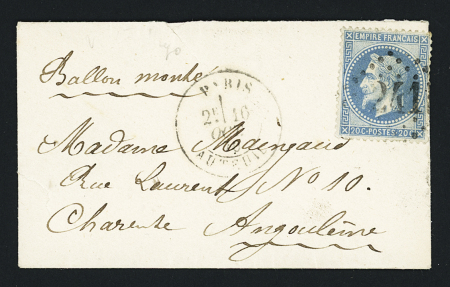 Ballon monté
PARIS
2E 16
OCT
AUTEUIL
EMPIRE FRANÇAIS
20C·POSTES·20C
Madame Maingaud
Rue Laurent No 10.
Charente Angoulême